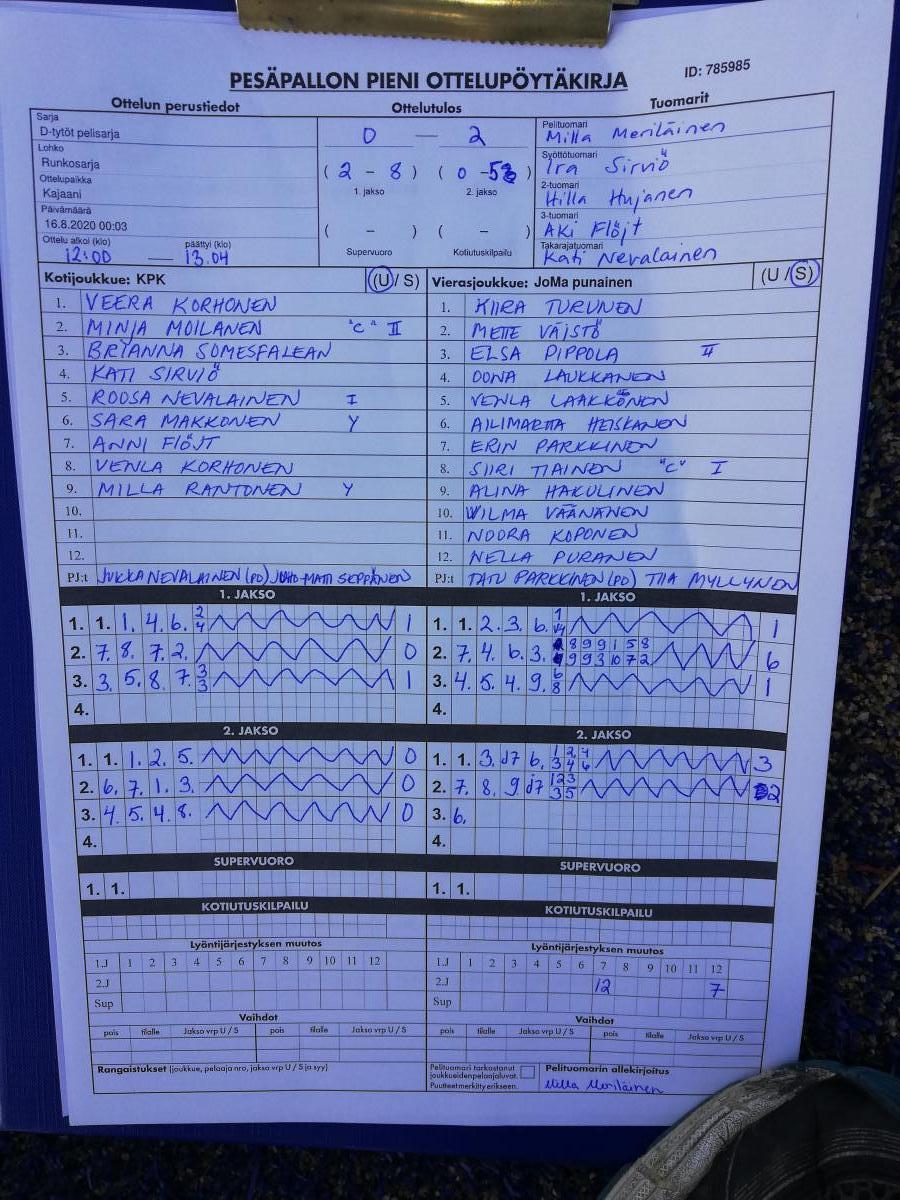 PESÄPALLON PIENI OTTELUPÖYTÄKIRJA
ID: 785985
Ottelun perustiedot
Ottelutulos
Tuomarit
Sarja
D-tytöt pelisarja
Lohko
Runkosarja
Ottelupaikka
Kajaani
Päivämäärä
16.8.2020 00:03
Ottelu alkoi (klo) päättyi (klo)
12:00 — 13.04
0 — 2
( 2 - 8 ) ( 0 - 5 )
1. jakso 2. jakso
( - ) ( - )
Supervuoro Kotiutuskilpailu
Pelituomari
Milla Meriläinen
Syöttötuomari
Ira Sirviö
2-tuomari
Hilla Hujanen
3-tuomari
Aki Flöjt
Takarajatuomari
Kati Nevalainen
Kotijoukkue: KPK (U / S)
1. VEERA KORHONEN
2. MINJA MOILANEN "C" II
3. BRYANNA SOMESFALEAN
4. KATI SIRVIÖ
5. ROOSA NEVALAINEN I
6. SARA MAKKONEN Y
7. ANNI FLÖJT
8. VENLA KORHONEN
9. MILLA RANTONEN Y
10.
11.
12.
PJ:t JUKKA NEVALAINEN (PO) JUHO-MATTI SEPPÄNEN
Vierasjoukkue: JoMa punainen (U / S)
1. KIIRA TURUNEN
2. METTE VÄISTÖ
3. ELSA PIPPOLA II
4. OONA LAUKKANEN
5. VENLA LAAKKONEN
6. AILIMARTA HEISKANEN
7. ERIN PARKKINEN
8. SIIRI TIAINEN "C" I
9. ALINA HAKULINEN
10. WILMA VÄÄNÄNEN
11. NOORA KOPONEN
12. NELLA PURANEN
PJ:t TATU PARKKINEN (PO) TIIA MYLLYNEN
1. JAKSO
1. 1. 1. 4. 6. 2 4 1
2. 7. 8. 7. 2. 0
3. 3. 5. 8. 7. 3 3 1
4.
1. JAKSO
1. 1. 2. 3. 6. 1
2. 7. 4. 6. 3. 8 9 9 1 5 8 9 9 3 10 7 2 6
3. 4. 5. 4. 9. 6 8 1
4.
2. JAKSO
1. 1. 1. 2. 5. 0
2. 6. 7. 1. 3. 0
3. 4. 5. 4. 8. 0
4.
2. JAKSO
1. 1. 3. J7 6. 1 2 4 3 4 6 3
2. 7. 8. 9 J7 1 2 3 3 5 2
3. 6.
4.
SUPERVUORO
1. 1.
SUPERVUORO
1. 1.
KOTIUTUSKILPAILU
KOTIUTUSKILPAILU
Lyöntijärjestyksen muutos
1.J 1 2 3 4 5 6 7 8 9 10 11 12
2.J
Sup
Lyöntijärjestyksen muutos
1.J 1 2 3 4 5 6 7 8 9 10 11 12
2.J 12 7
Sup
Vaihdot
pois tilalle Jakso vrp U / S pois tilalle Jakso vrp U / S
Vaihdot
pois tilalle Jakso vrp U / S pois tilalle Jakso vrp U / S
Rangaistukset (joukkue, pelaaja nro, jakso vrp U / S ja syy)
Pelituomari tarkastanut
joukkueiden pelaajaluvat.
Puutteet merkitty erikseen.
Pelituomarin allekirjoitus
Milla Meriläinen